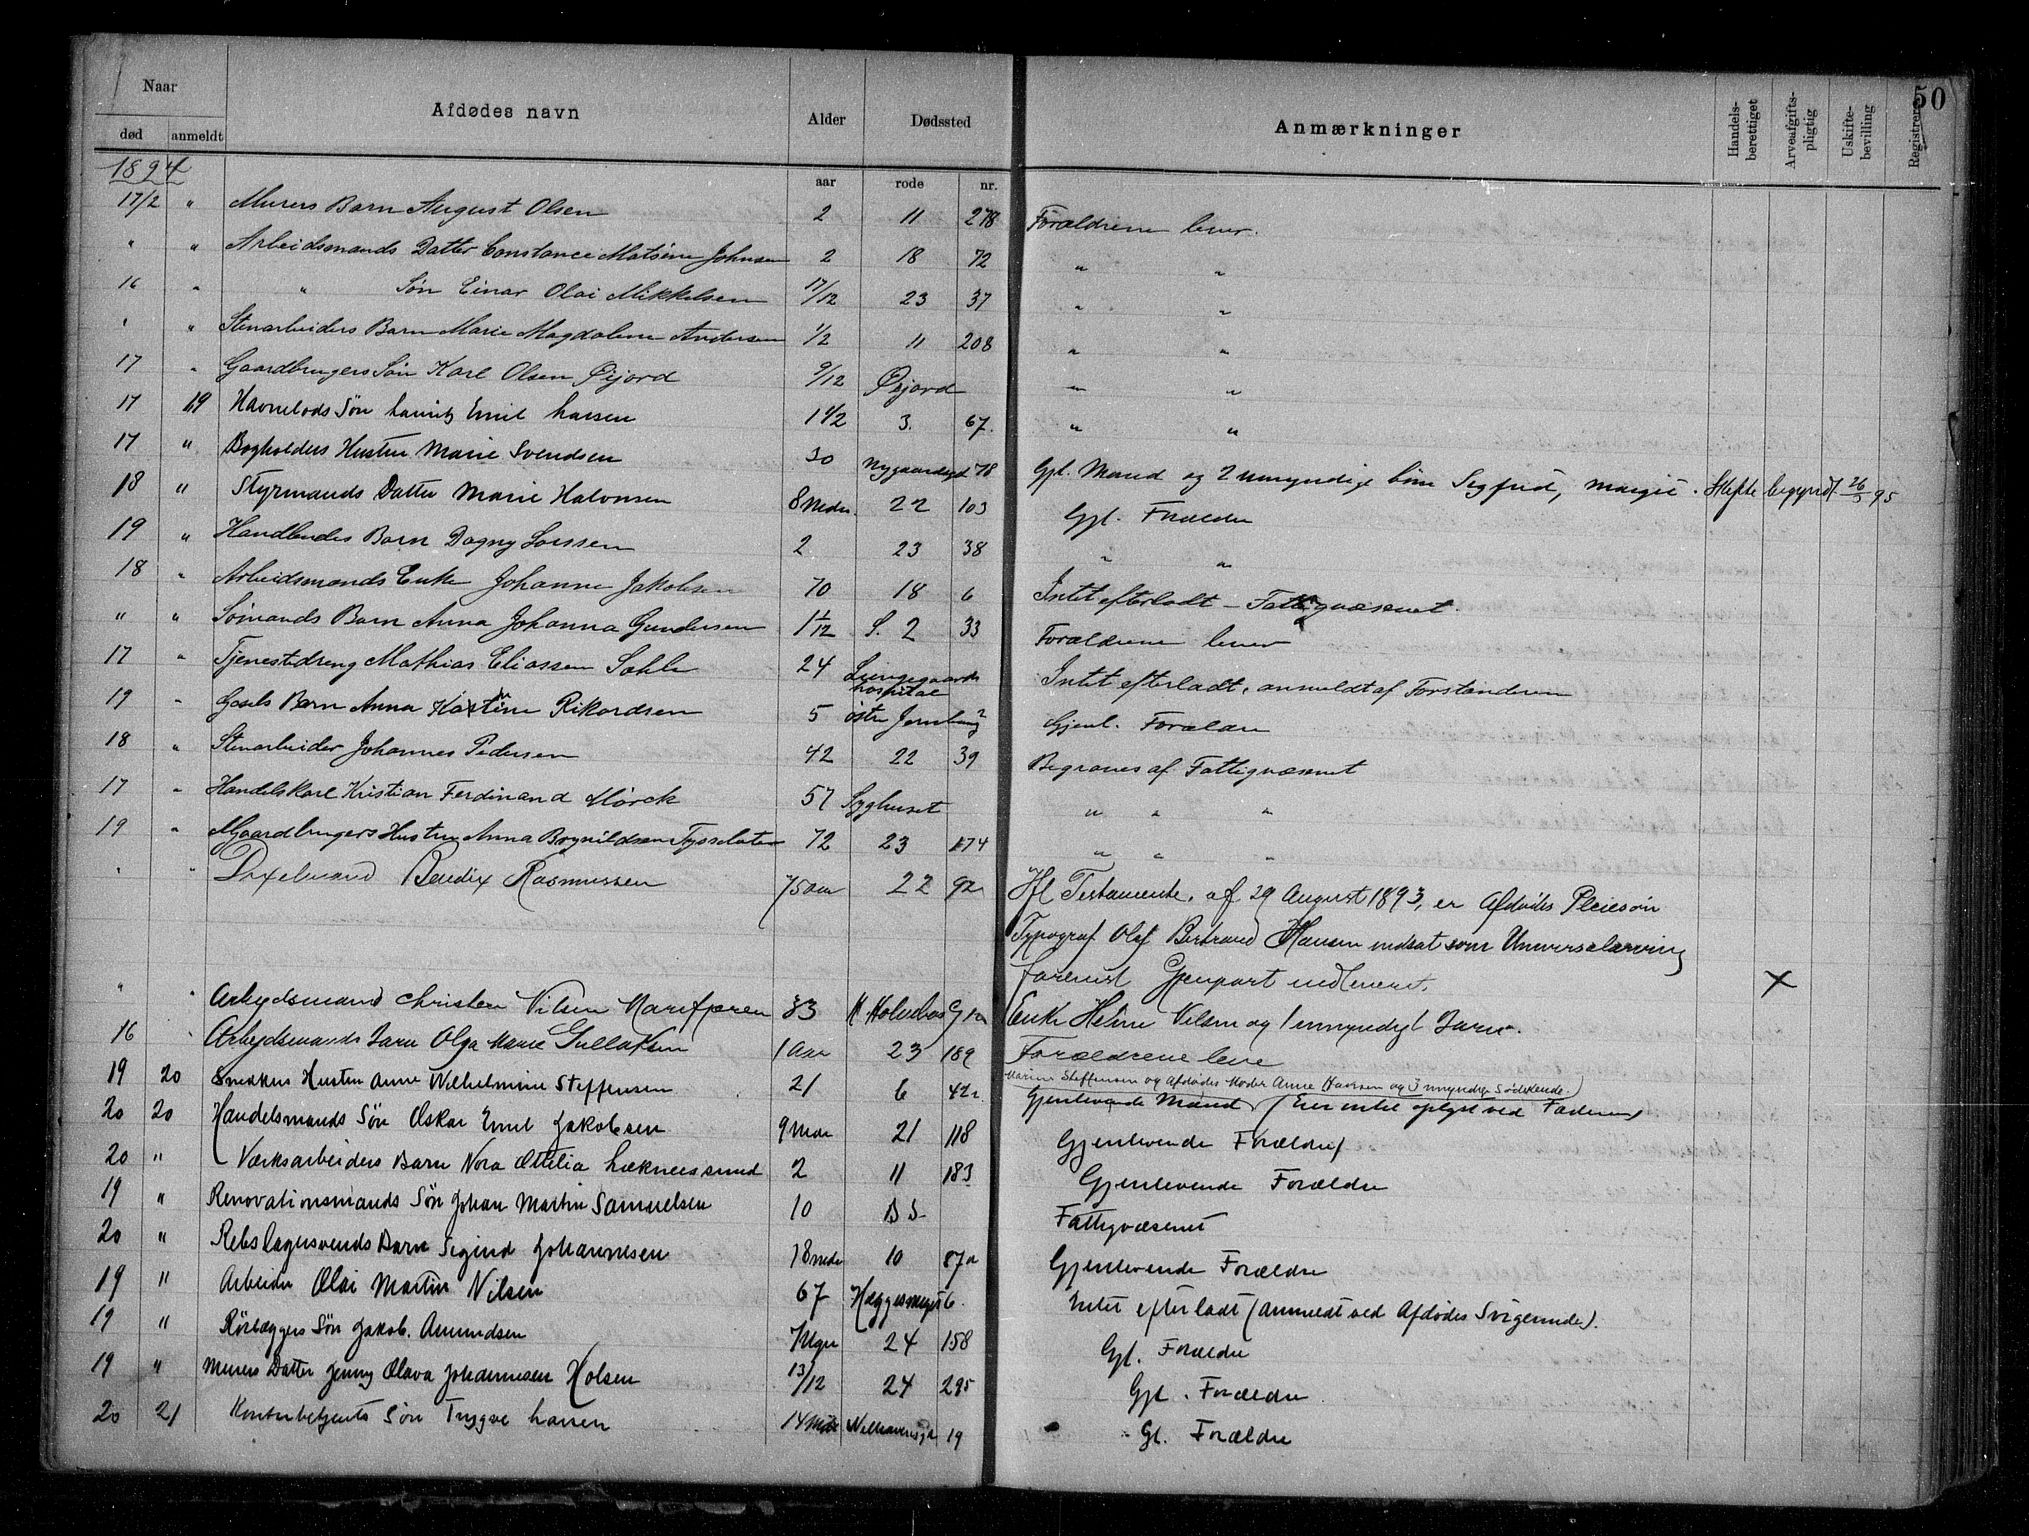 50
Naar Afdødes navn Alder Dødssted Anmærkninger Handelsberettiget Arveafgiftspligtig Uskiftebevilling Registreret
død anmeldt aar rode nr.
1894
17/2 " Murers Barn August Olsen 2 11 278 Forældrene lever.
" " Arbeidsmands Datter Constance Matsine Johnsen 2 18 72 " "
16 " " Søn Einar Olai Mikkelsen 17/12 23 37 " "
" " Stenarbeiders Barn Marie Magdalene Andersen 1/2 11 208 " "
17 " Gaardbrugers Søn Karl Olsen Øijord 9/12 Øijord " "
17 19 Havnelods Søn Lauritz Emil Larsen 1 1/2 3. 67. " "
17 " Bogholders Hustru Marie Svendsen 30 Nygaardsgt 78 Gjl. Mand og 2 umyndige børn Sigfrid, Margit. Skifte begyndt 26/3 95
18 " Styrmands Datter Marie Halvorsen 8 Mdr. 22 103 Gjl. Forældre
19 " Handlendes Barn Dagny Larssen 2 23 38 " "
18 " Arbeidsmands Enke Johanne Jakobsen 70 18 6 Intet efterladt – Fattigvæsenet.
" " Sømands Barn Anna Johanna Gundersen 1 1/12 S. 2 33 Forældrene lever
17 " Tjenestedreng Mathias Eliassen Sohle 24 Lungegaards hospital Intet efterladt, anmeldt af Forstanderen
19 " Gjøsels Barn Anna Kartine Rikardsen 5 østre Gjenl. Forældre
18 " Stenarbeider Johannes Pedersen 42 22 39 Begraves af Fattigvæsenet
17 " Handelskarl Kristian Ferdinand Mørck 57 Syghuset " " "
19 " Gaardbrugers Hustru Anna Brynildsen Tysseloten 72 23 174 " " "
" " Drxelmand Bendix Rasmussen 75 aar 22 92 Ifl Testamente, af 29 August 1893, er Afdødes Pleiesøn
Typograf Olaf Bertrand Hansen indsat som Universalarving
forevist Gjenpart indleveret. X
" " Arbejdsmand Christen Nilsen Marifjæren 33 H Holmboes G 12 Enke Helene Nilsen og 1 umyndigt Barn.
16 " Arbejdsmands Barn Olga Marie Gullaksen 1 Aar 23 189 Forældrene leve
19 20 Snedkers Hustru Anne Wilhelmine Steffensen 21 6 42 Gjenlevende Mand
Marius Steffensen og Afdødes Moder Anne Hansen og 3 umyndige Sødskende.) (Eier intet oplyst ved Faderen)
20 20 Handelsmands Søn Oskar Emil Jakobsen 9 Mdr 21 118 Gjenlevende Forældre
20 " Værksarbeiders Barn Nora Ottilia Læknessund 2 11 183 Gjenlevende Forældre
19 " Renovationsmands Søn Johan Martin Samuelsen 10 Fattigvæsenet
20 " Rebslagersvends Barn Sigurd Johannesen 18 mdr 10 87a Gjenlevende Forældre
19 " Arbeider Olai Martin Nilsen 67 Hæggesmuget 6. Intet efterladt (Anmeldt ved Afdødes Svigerinde).
19 " Rørlæggers Søn Jakob. Amundsen 7 Uger 24 158 Gjl. Forældre
19 " Murers Datter Jenny Olava Johannesen Holsen 13/12 24 295 Gjl. Forældre
20 21 Kontorbetjents Søn Trygve Larsen 14 Mdr 19 Gl. Forældre